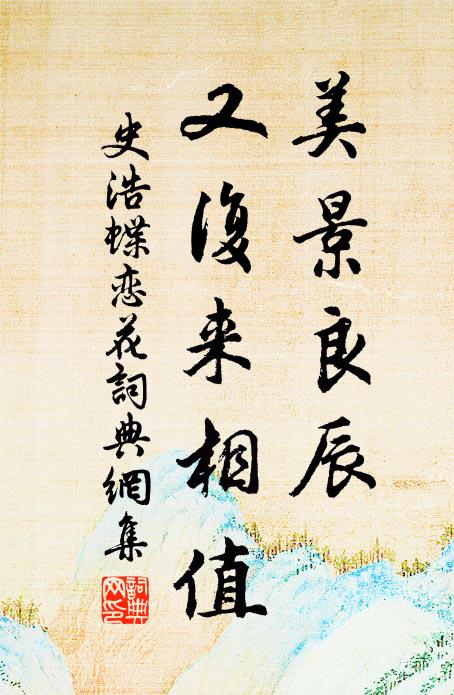 美景良辰
又復来相值
史浩蝶恋花詞典網集
詞典
网印